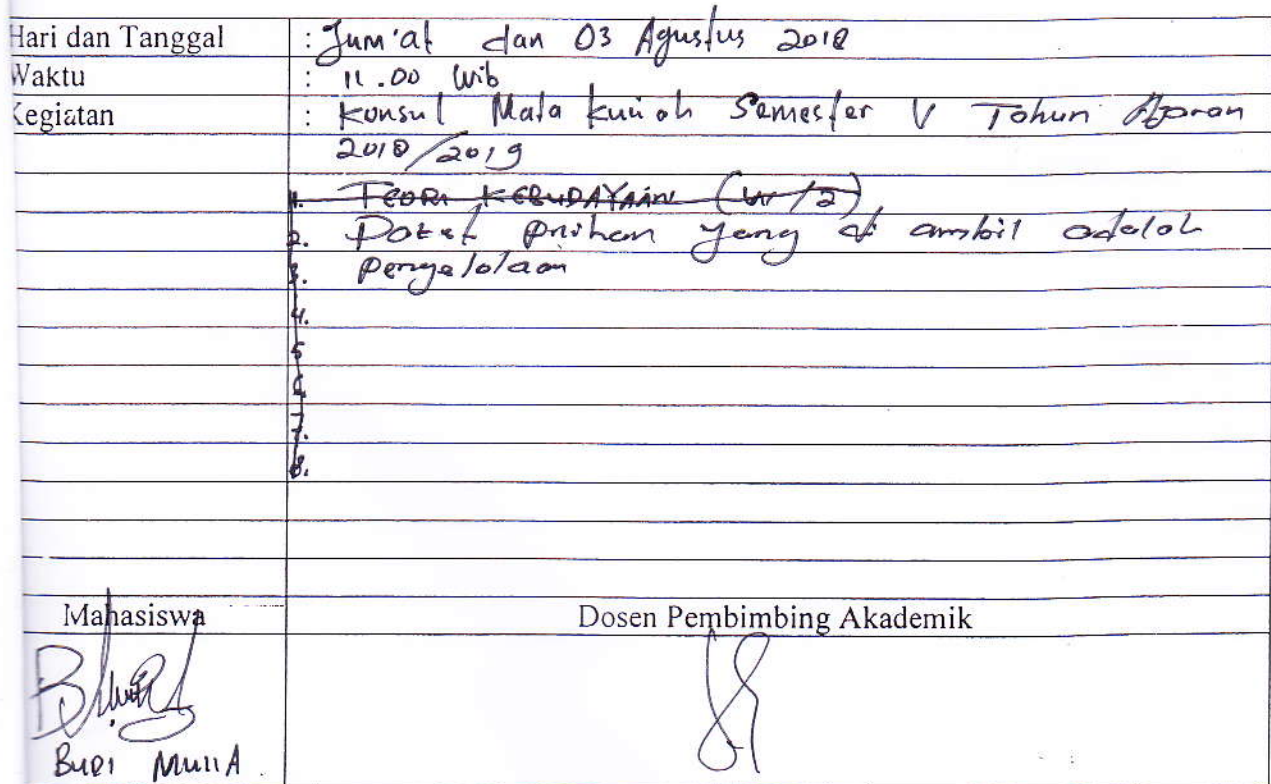 Hari dan Tanggal : Jum'at dan 03 Agustus 2018
Waktu : 11.00 Wib
Kegiatan : Konsul Mata Kuliah Semester V Tahun Ajaran
2018/2019
1. TEORI KEBUDAYAAN (W/2)
2. Paket pilihan yang di ambil adalah
3. pengelolaan
4.
5
6
7.
8.
Mahasiswa Dosen Pembimbing Akademik
BUDI MULIA